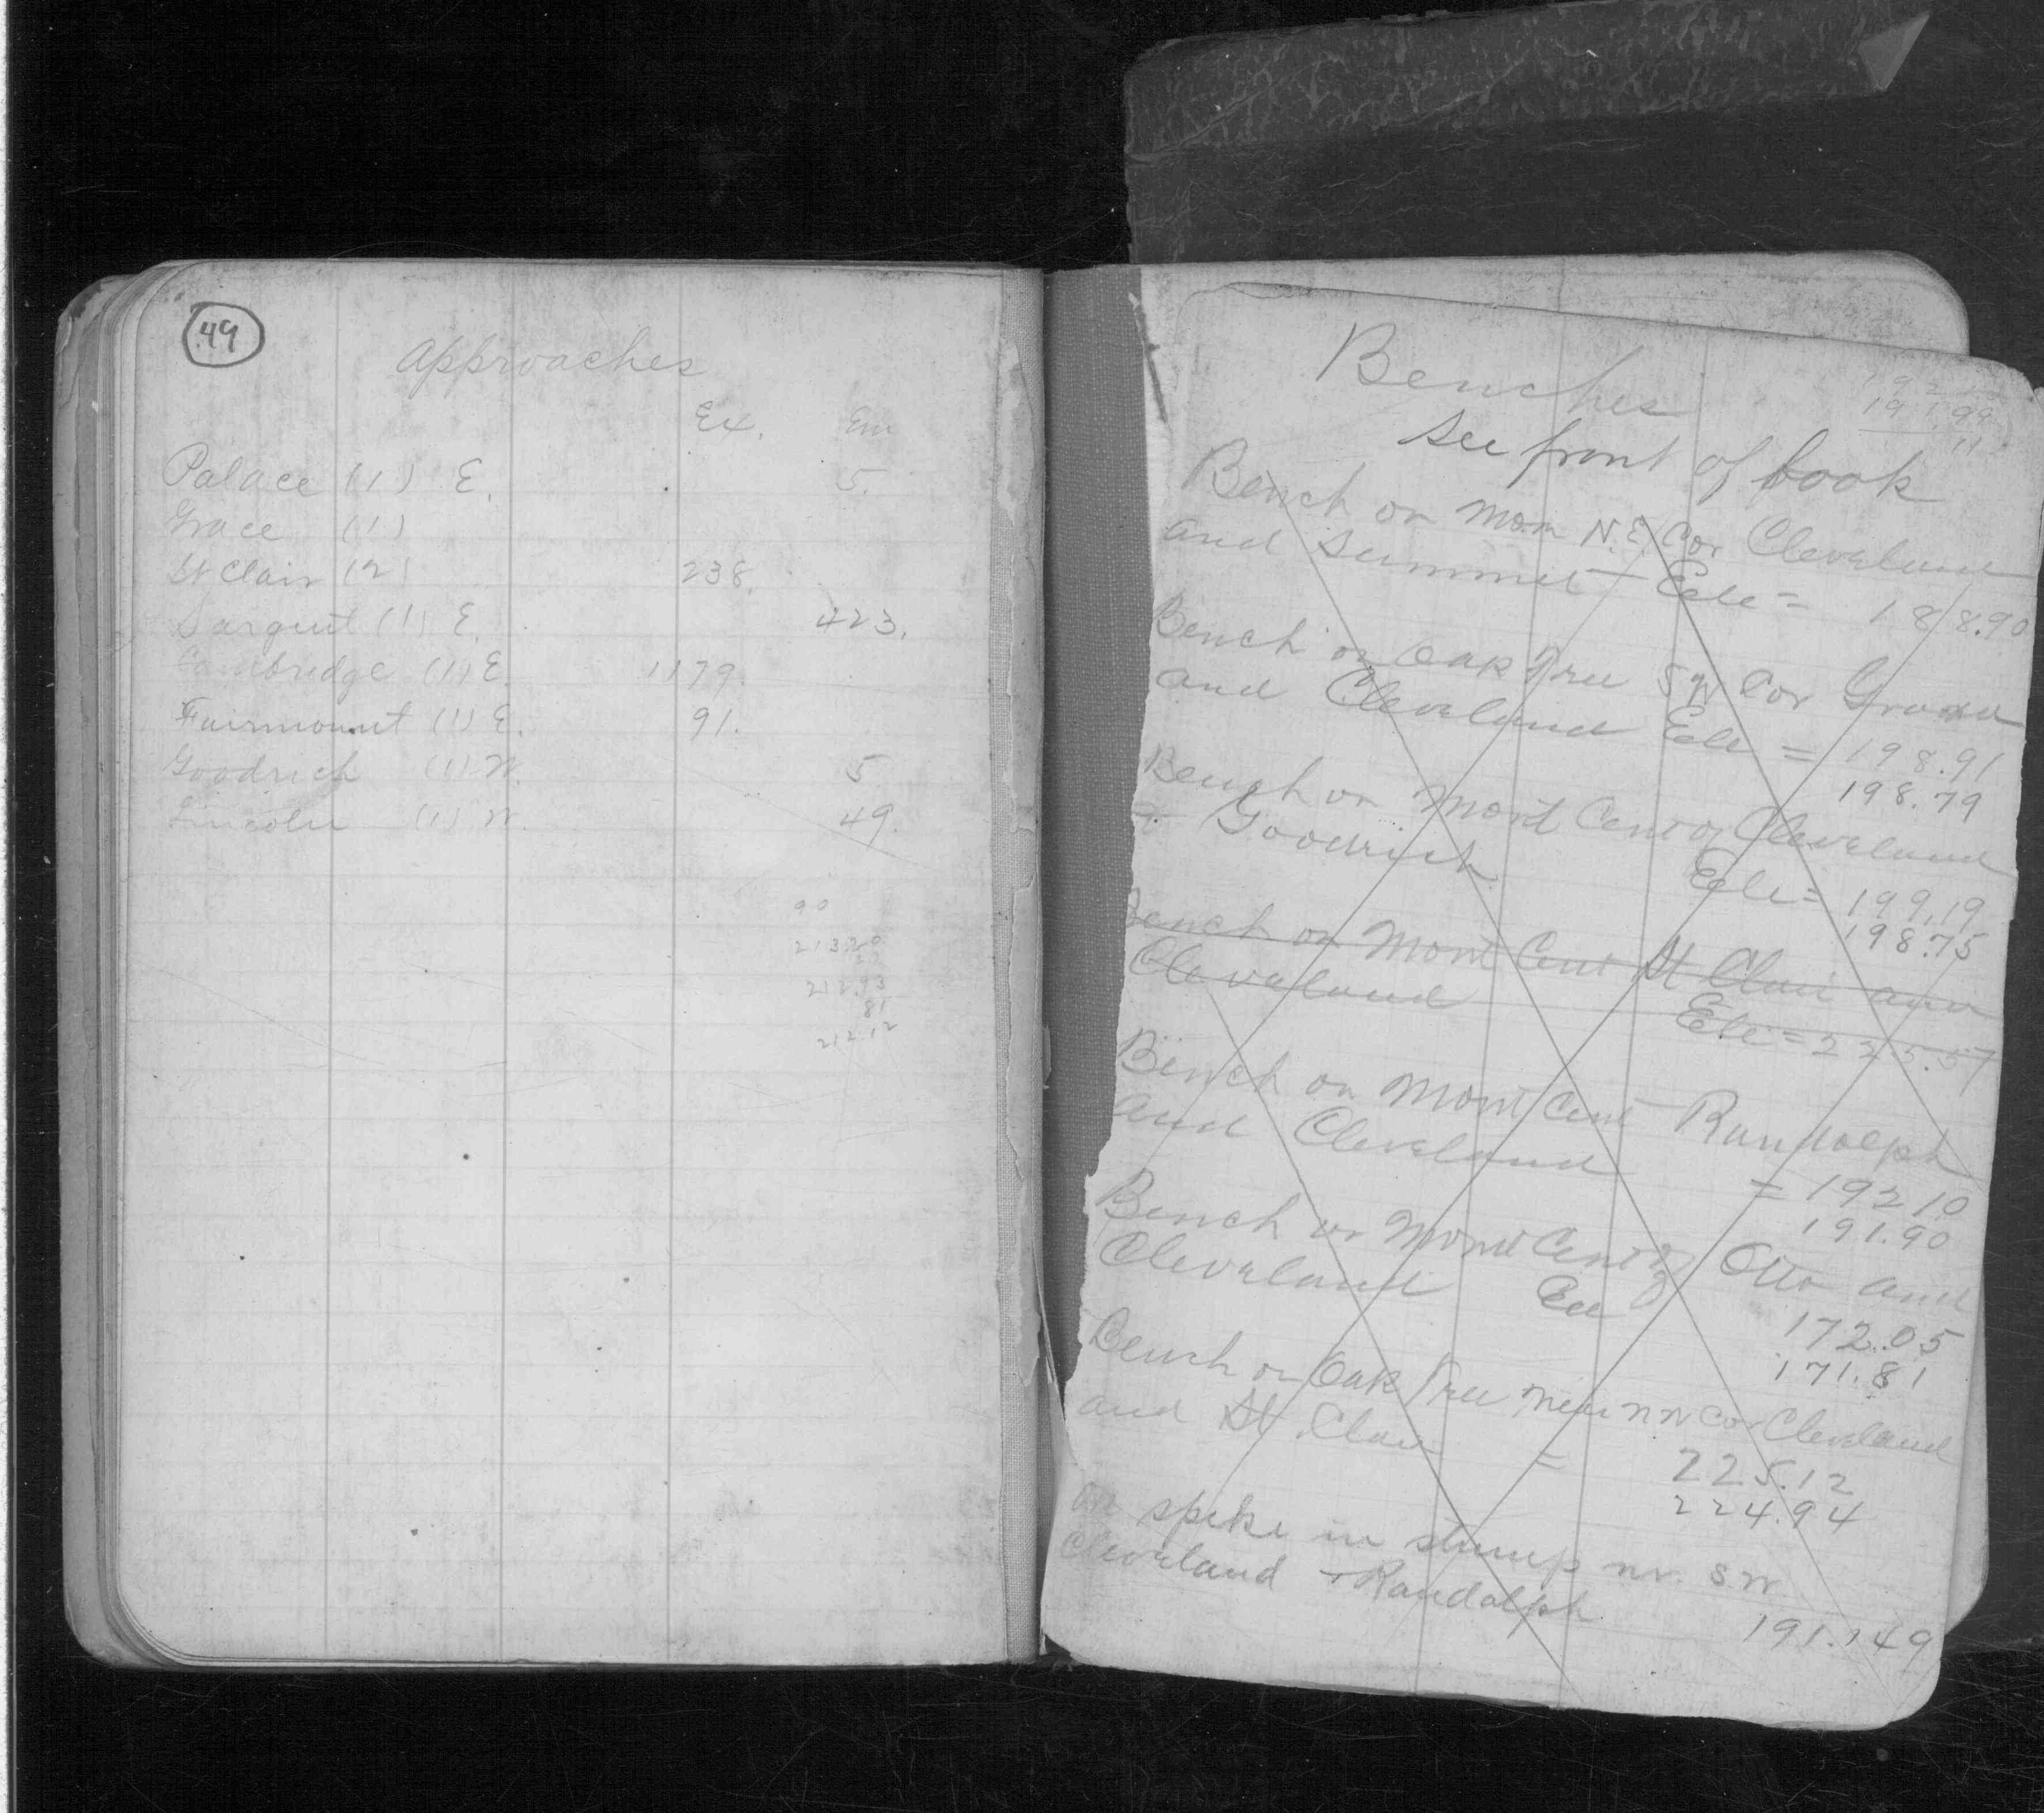 49
Approaches
Ex. Em
Palace (1) E. 5.
Grace (1)
St Clair (2) 238.
Sargent (1) E. 423.
Cambridge (1) E. 1179.
Fairmount (1) E. 91.
Goodrich (1) W. 5
Lincoln (1) W. 49.
90
213.20
212.93
81
212.12
Benches
191.99
11
See front of book
Bench on Mon N.E. Cor Cleveland
and Summit Ele = 188.90
Bench on Oak Tree SW Cor Grand
and Cleveland Ele = 198.91
198.79
Bench on Mont Cent of Cleveland
& Goodrich
Ele = 199.19
198.75
Bench on Mont Cent St Clair and
Cleveland Ele = 225.57
Bench on Mont Cent Randolph
and Cleveland = 192.10
191.90
Bench on Mont Cent of Otto and
Cleveland Ele 172.05
171.81
Bench on Oak Tree near NW Cor Cleveland
and St Clair = 225.12
224.94
on spike in stump nr. S.W.
Cleveland + Randolph
191.149